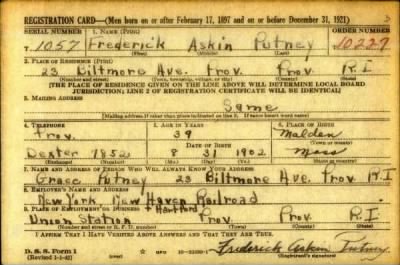 REGISTRATION CARD—(Men born on or after February 17, 1897 and on or before December 31, 1921)
SERIAL NUMBER 1. NAME (Print) ORDER NUMBER
T 1057 Frederick Askin Putney 10227
(First) (Middle) (Last)
2. PLACE OF RESIDENCE (Print)
23 Biltmore Ave. Prov. Prov. R.I
(Number and street) (Town, township, village, or city) (County) (State)
[THE PLACE OF RESIDENCE GIVEN ON THE LINE ABOVE WILL DETERMINE LOCAL BOARD
JURISDICTION; LINE 2 OF REGISTRATION CERTIFICATE WILL BE IDENTICAL]
3. MAILING ADDRESS
Same
[Mailing address if other than place indicated on line 2. If same insert word same]
4. TELEPHONE 5. AGE IN YEARS 6. PLACE OF BIRTH
Prov. 39 Malden
DATE OF BIRTH (Town or county)
Dexter 1852 8 31 1902 Mass
(Exchange) (Number) (Mo.) (Day) (Yr.) (State or country)
7. NAME AND ADDRESS OF PERSON WHO WILL ALWAYS KNOW YOUR ADDRESS
Grace Putney 23 Biltmore Ave. Prov R.I
8. EMPLOYER'S NAME AND ADDRESS
New York, New Haven Railroad
9. PLACE OF EMPLOYMENT OR BUSINESS + Hartford
Union Station Prov. Prov. R.I
(Number and street or R. F. D. number) (Town) (County) (State)
I AFFIRM THAT I HAVE VERIFIED ABOVE ANSWERS AND THAT THEY ARE TRUE.
D. S. S. Form 1 Frederick Askin Putney
(Revised 1-1-42) GPO (Registrant's signature)